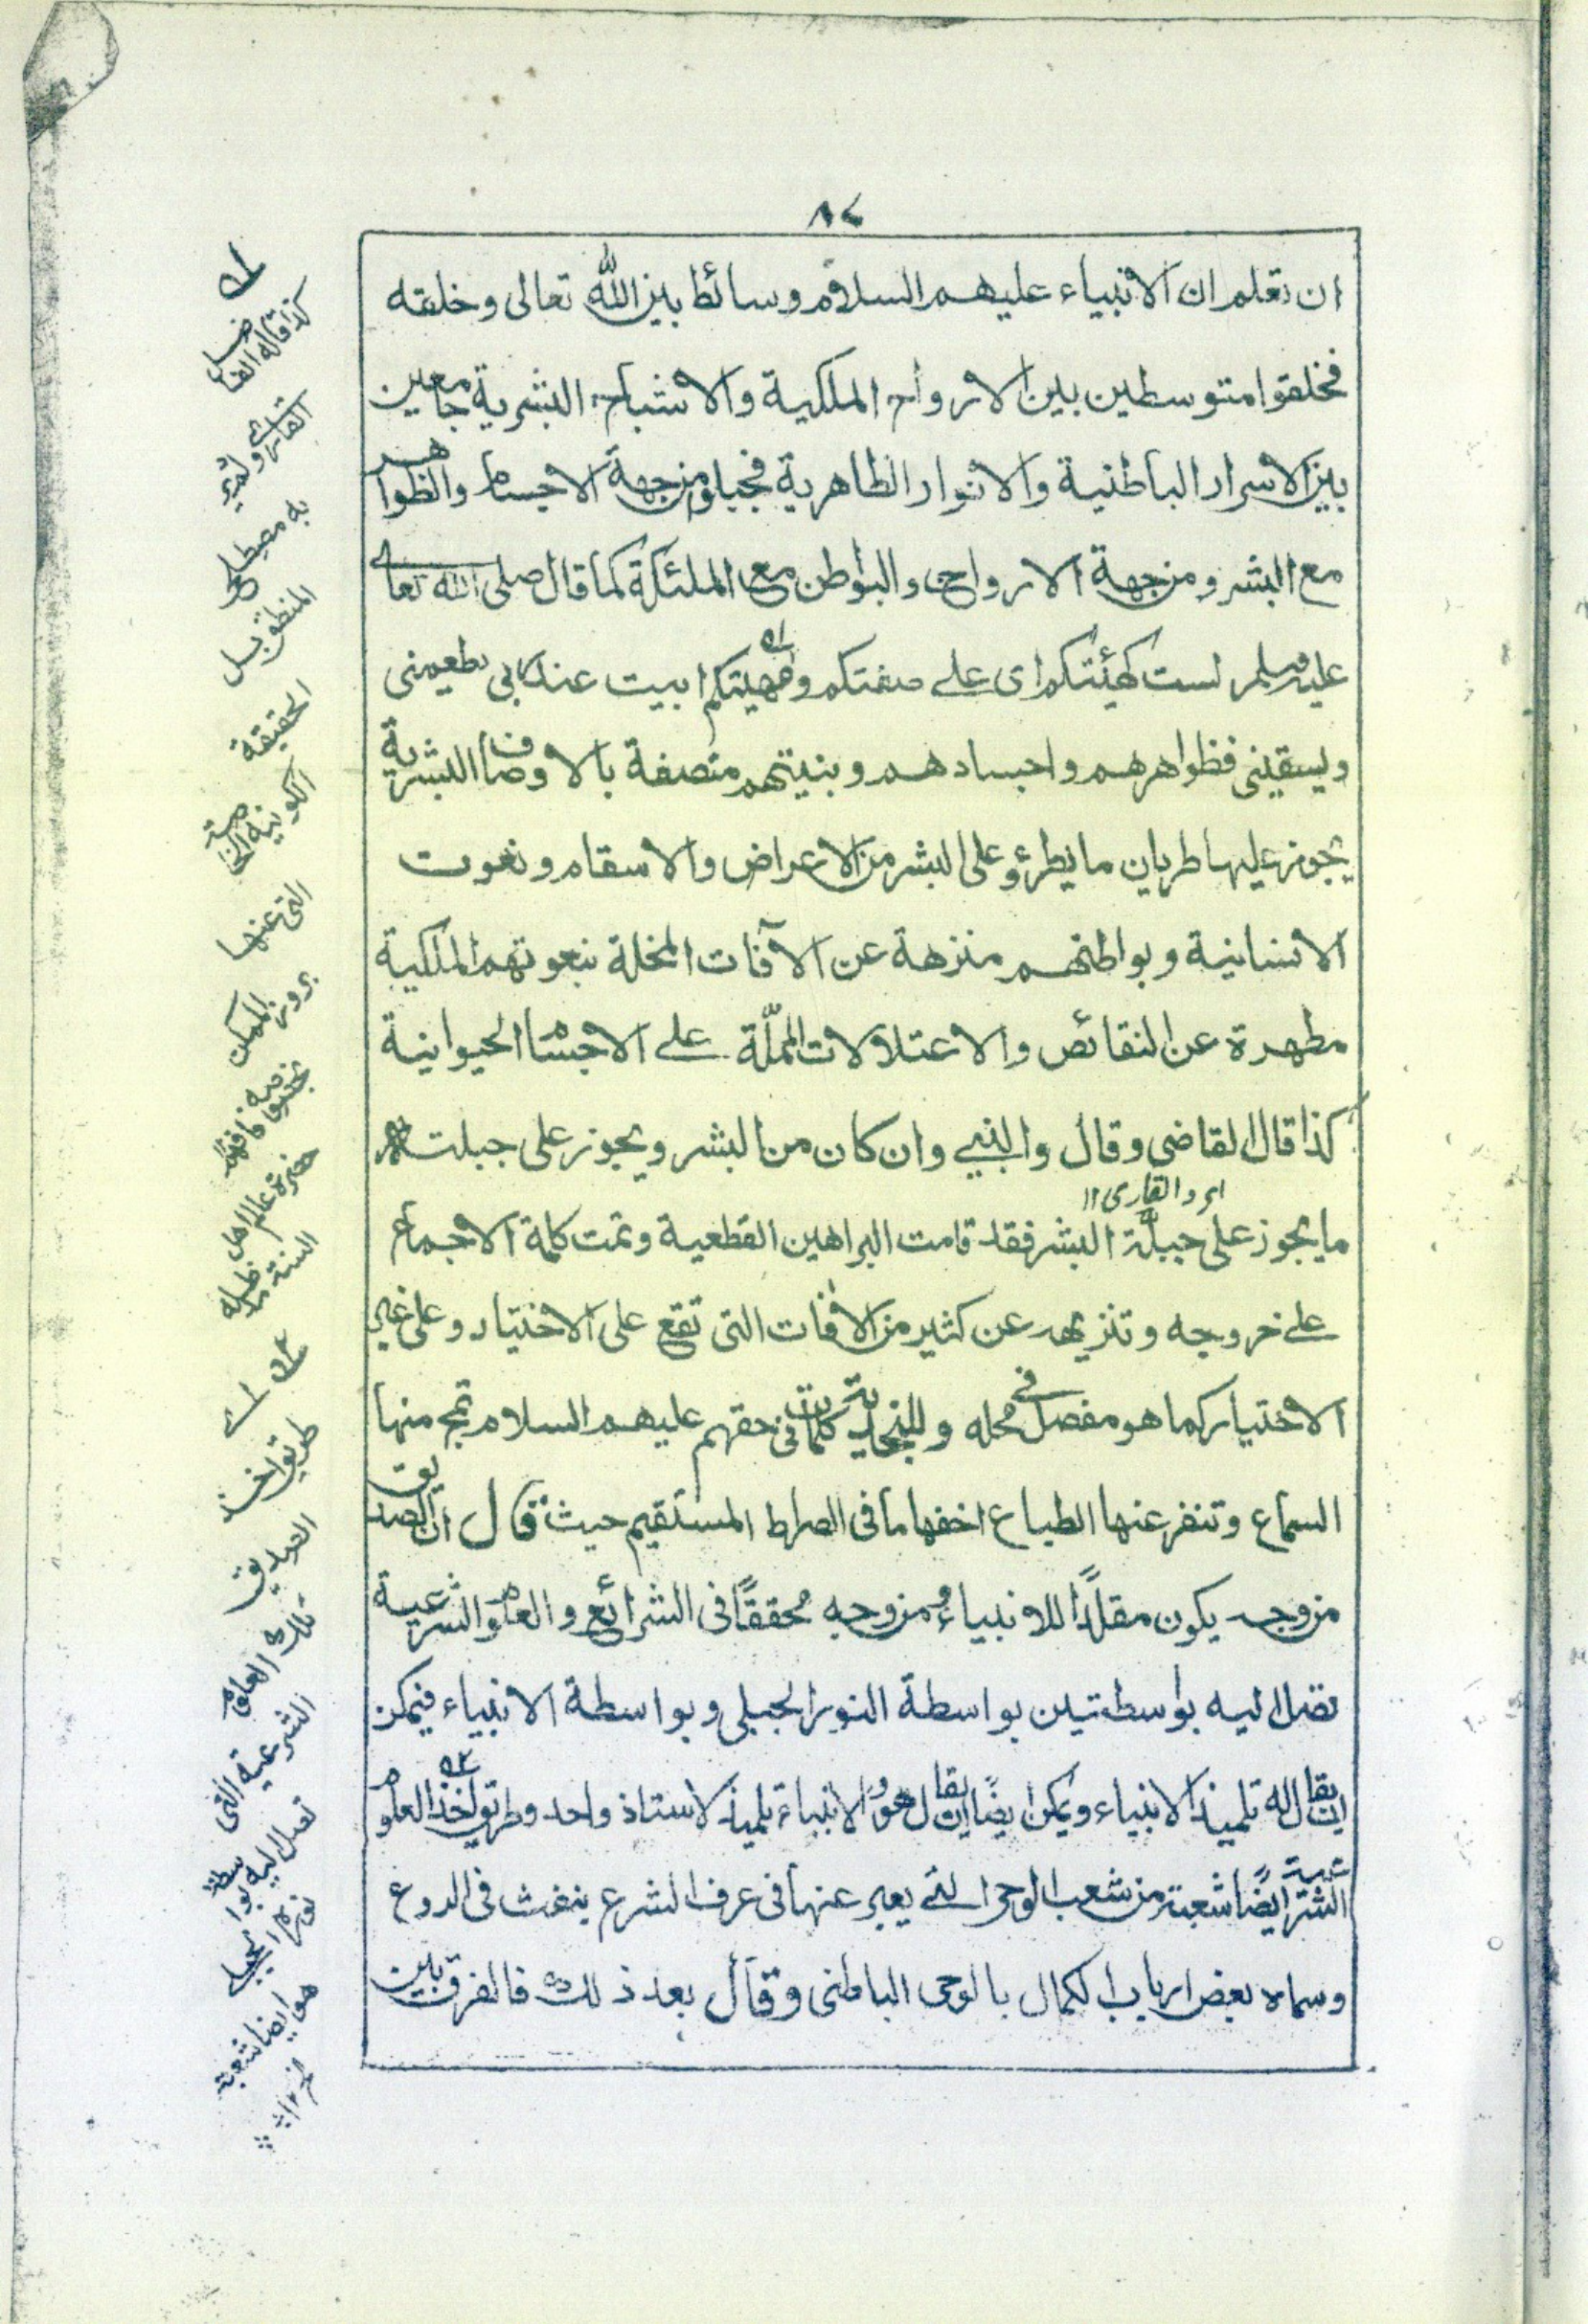 ٨٤
ان تعلم ان الانبياء عليهم السلام وسائط بين الله تعالى وخلقه
فخلقوا متوسطين بين الارواح الملكية والاشباح البشرية جامعين
بين الاسرار الباطنية والانوار الظاهرية فجبلوا من جهة الاجسام والظواهر
مع البشر ومن جهة الارواح والبواطن مع الملئكة كما قال صلى الله تعالى
عليه وسلم لست كهيئتكم اى على صفتكم وماهيتكم ابيت عند ربى يطعمنى
ويسقينى فظواهرهم واجسادهم وبنيتهم متصفة بالاوصاف البشرية
يجوز عليها طريان ما يطرؤ على البشر من الاعراض والاسقام ونعوت
الانسانية وبواطنهم منزهة عن الآفات المخلة بنعوتهم الملكية
مطهرة عن النقائص والاعتلالات الملمّة على الاجسام الحيوانية
كذا قال القاضى وقال والنبى وان كان من البشر ويجوز على جبلته
ايرد القارى ١١
ما يجوز على جبلة البشر فقد قامت البراهين القطعية وتمت كلمة الاجماع
على خروجه وتنزيهه عن كثير من الآفات التى تقع على الاختيار وعلى غير
الاختيار كما هو مفصل فى محله وللنجدية كلمات فى حقهم عليهم السلام تمج منها
السماع وتنفر عنها الطباع اخفها ما فى الصراط المستقيم حيث قال ان الصديق
من وجه يكون مقلدًا للانبياء ومن وجه محققًا فى الشرائع والعلوم الشرعية
تصل اليه بواسطتين بواسطة النور الجبلى وبواسطة الانبياء فيمكن
ان يقال له تلميذ الانبياء ويمكن ايضًا ان يقال هو والانبياء تلميذ لاستاذ واحد وطريق اخذ العلوم
الشرعية ايضًا شعبة من شعب الوحى التى يعبر عنها فى عرف الشرع بنفث فى الروع
وسماه بعض ارباب الكمال بالوحى الباطنى وقال بعد ذلك فالفرق بين
كذا قاله الفاضل
القارى
به مصطلح
المنطق بل
الحقيقة
الكونية الخاصة
التى عنها
بروز الممكن
حضرة عالم اهل
السنة مد ظله
طريق اخذ
الصديق
تلك العلوم
الشرعية التى
تصل اليه بواسطة
نوره الجبلى
هو ايضا شعبة